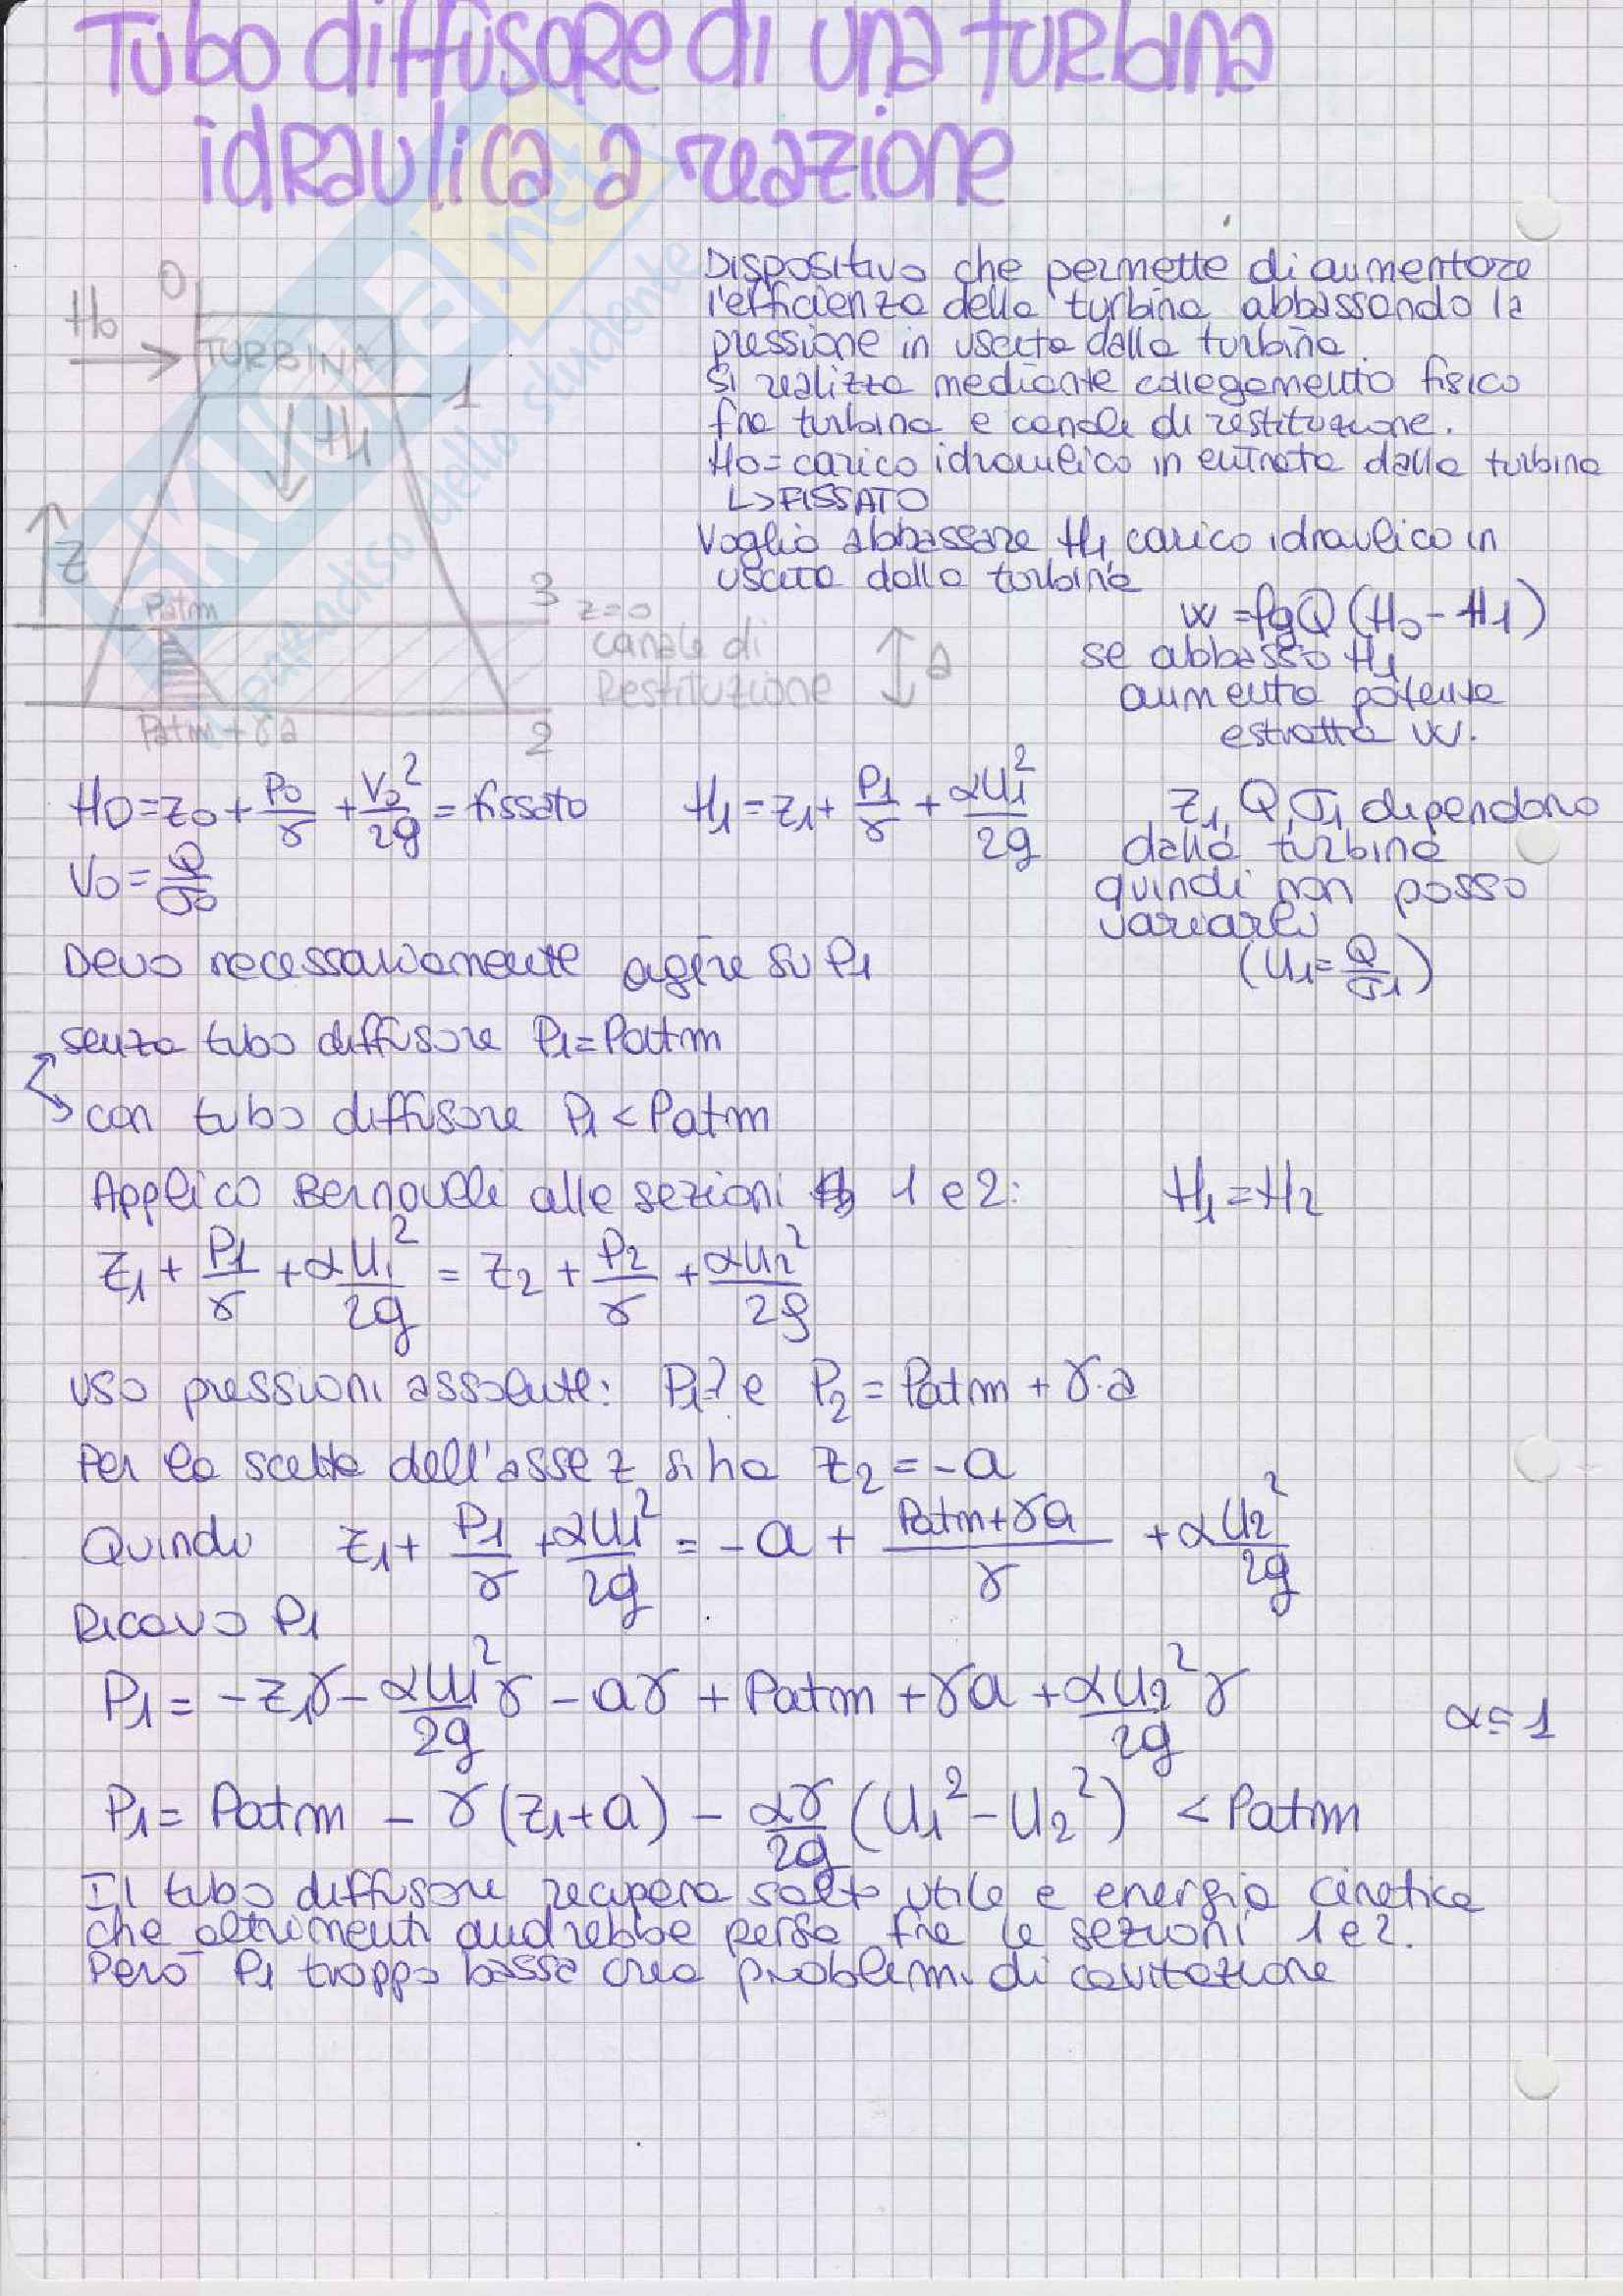 Tubo diffusore di una turbina
idraulica a reazione
Dispositivo che permette di aumentare
l'efficienza della turbina abbassando la
pressione in uscita dalla turbina.
Si realizza mediante collegamento fisico
fra turbina e canale di restituzione.
H0 = carico idraulico in entrata dalla turbina
L> FISSATO
Voglio abbassare H1, carico idraulico in
uscita dalla turbina
W = ρgQ (H0 - H1)
se abbasso H1
aumenta potenza
estratta W.
0
H0
TURBINA
1
H1
z
Patm
3 z=0
canale di
Restituzione
a
Patm + γa
2
SKUOLA.net
il paradiso dello studente
H0 = z0 + P0/γ + V0²/2g = fissato
H1 = z1 + P1/γ + αU1²/2g
z1, Q, σ1 dipendono
dalla turbina
quindi non posso
variarli
(U1 = Q/σ1)
V0 = Q/σ0
Devo necessariamente agire su P1
senza tubo diffusore P1 = Patm
con tubo diffusore P1 < Patm
Applico Bernoulli alle sezioni 1 e 2: H1 = H2
z1 + P1/γ + αU1²/2g = z2 + P2/γ + αU2²/2g
uso pressioni assolute: P1? e P2 = Patm + γ·a
Per la scelta dell'asse z si ha z2 = -a
Quindi z1 + P1/γ + αU1²/2g = -a + (Patm + γa)/γ + αU2²/2g
Ricavo P1
P1 = -z1γ - αU1²/2g γ - aγ + Patm + γa + αU2²/2g γ α = 1
P1 = Patm - γ(z1 + a) - αγ/2g (U1² - U2²) < Patm
Il tubo diffusore recupera salto utile e energia cinetica
che altrimenti andrebbe persa fra le sezioni 1 e 2.
Però P1 troppo bassa crea problemi di cavitazione